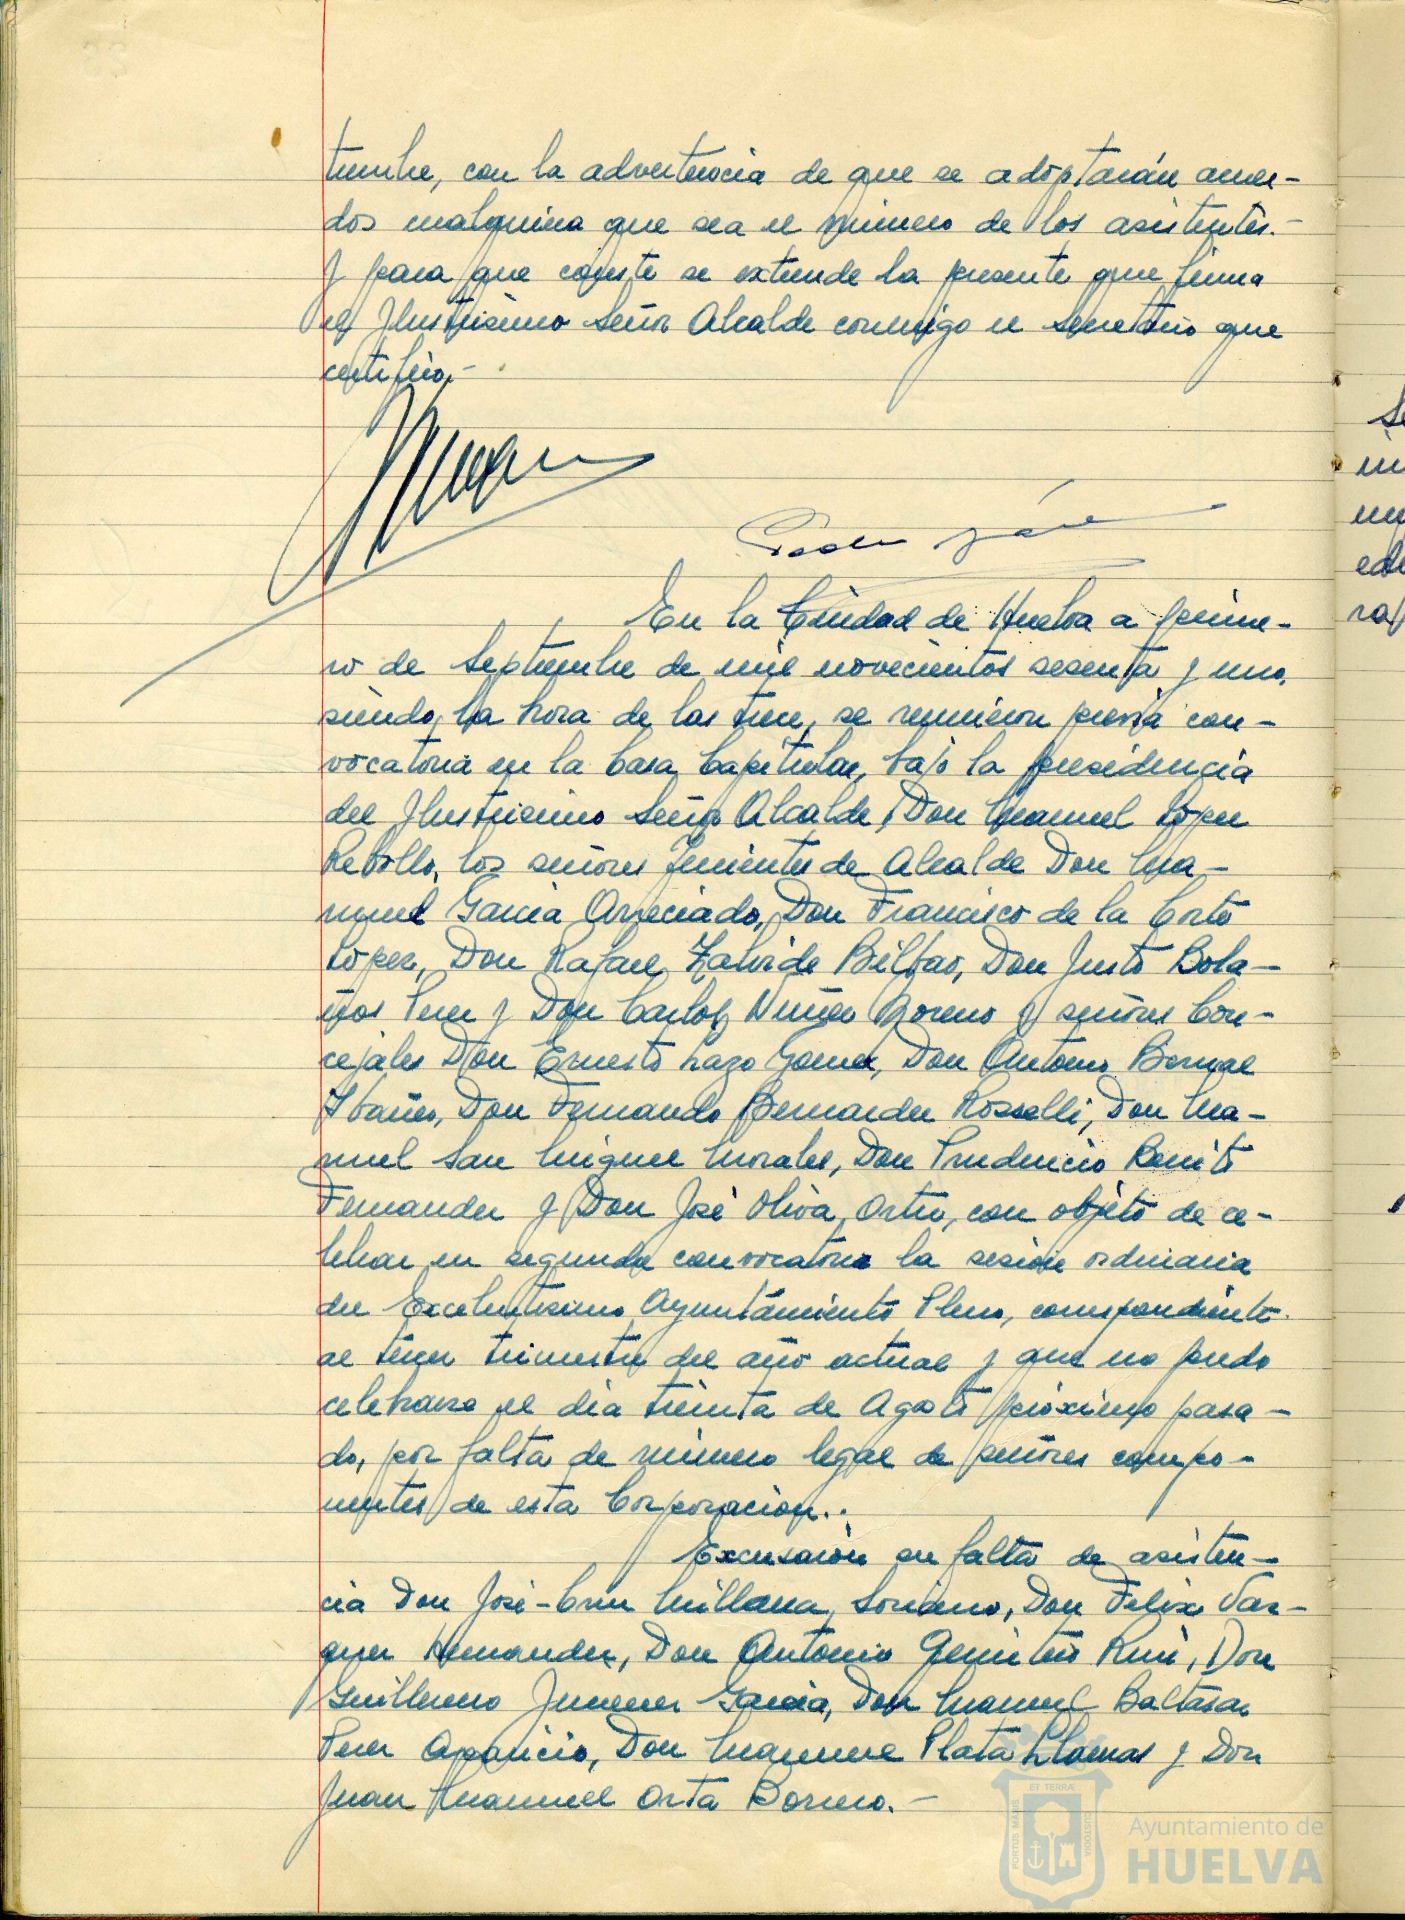 tiembre, con la advertencia de que se adoptarán acuer-
dos cualquiera que sea el número de los asistentes.-
Y para que conste se extiende la presente que firma
el Ilustrísimo Señor Alcalde conmigo el Secretario que
certifico.-
En la Ciudad de Huelva a prime-
ro de Septiembre de mil novecientos sesenta y uno,
siendo la hora de las trece, se reunieron previa con-
vocatoria en la Casa Capitular, bajo la presidencia
del Ilustrísimo Señor Alcalde, Don Manuel López
Rebollo, los señores Tenientes de Alcalde Don Ma-
nuel García Arreciado, Don Francisco de la Corte
López, Don Rafael Zalvide Bilbao, Don Justo Bola-
ños Perez y Don Carlos Núñez Moreno y señores Con-
cejales Don Ernesto Lazo Gomez, Don Antonio Bernal
Ibañez, Don Fernando Bernardez Rosselli, Don Ma-
nuel San Miguel Morales, Don Prudencio Benito
Fernandez y Don José Oliva Ortiz, con objeto de ce-
lebrar en segunda convocatoria la sesión ordinaria
del Excelentísimo Ayuntamiento Pleno, correspondiente
al tercer trimestre del año actual y que no pudo
celebrarse el día treinta de Agosto próximo pasa-
do, por falta de número legal de señores compo-
nentes de esta Corporación..
Excusaron su falta de asisten-
cia Don José-Cruz Millana Soriano, Don Felix Vaz-
quez Hernandez, Don Antonio Ruiz, Don
Guillermo Jimenez García, Don Manuel Baltasar
Perez Aparicio, Don Manuel Plata Llamas y Don
Juan Manuel Orta Borrero.-
PORTUS MARIS
ET TERRAE
CUSTODIA
Ayuntamiento de
HUELVA